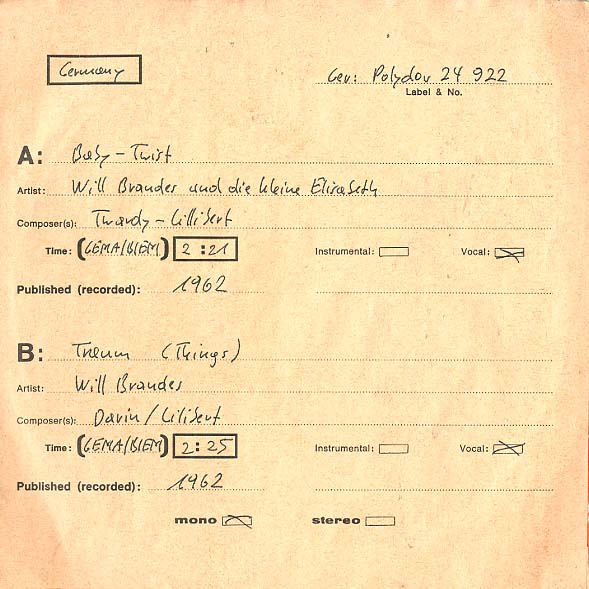 Germany
Ger: Polydor 24 922
Label & No.
A: Baby-Twist
Artist: Will Brandes und die kleine Elisabeth
Composer(s): Twardy-Lilibert
Time: (GEMA/BIEM) 2:21 Instrumental: Vocal:
Published (recorded): 1962
B: Traum (Things)
Artist: Will Brandes
Composer(s): Darin/Lilibert
Time: (GEMA/BIEM) 2:25 Instrumental: Vocal:
Published (recorded): 1962
mono stereo